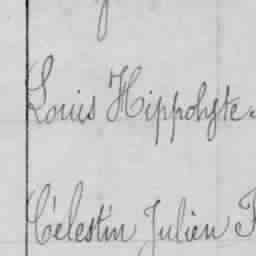 Louis Hippolyte
Célestin Julien